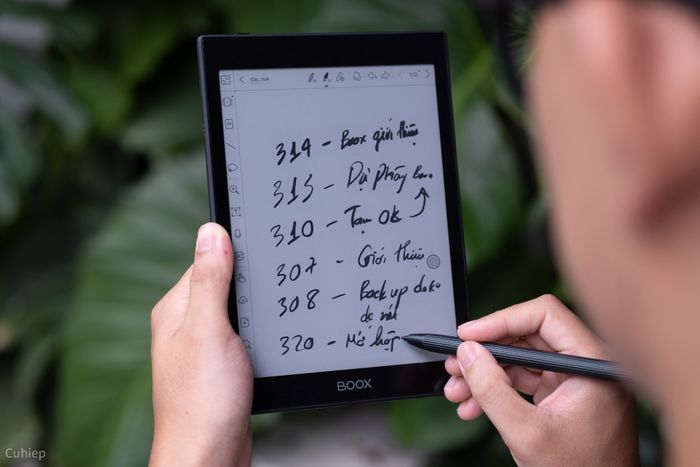 1/2
314 - Boox giới thiệu
315 - Dự phòng
310 - Tạm OK
307 - Giới thiệu
308 - Back up
320 - Mở hộp
BOOX
Cuhiep